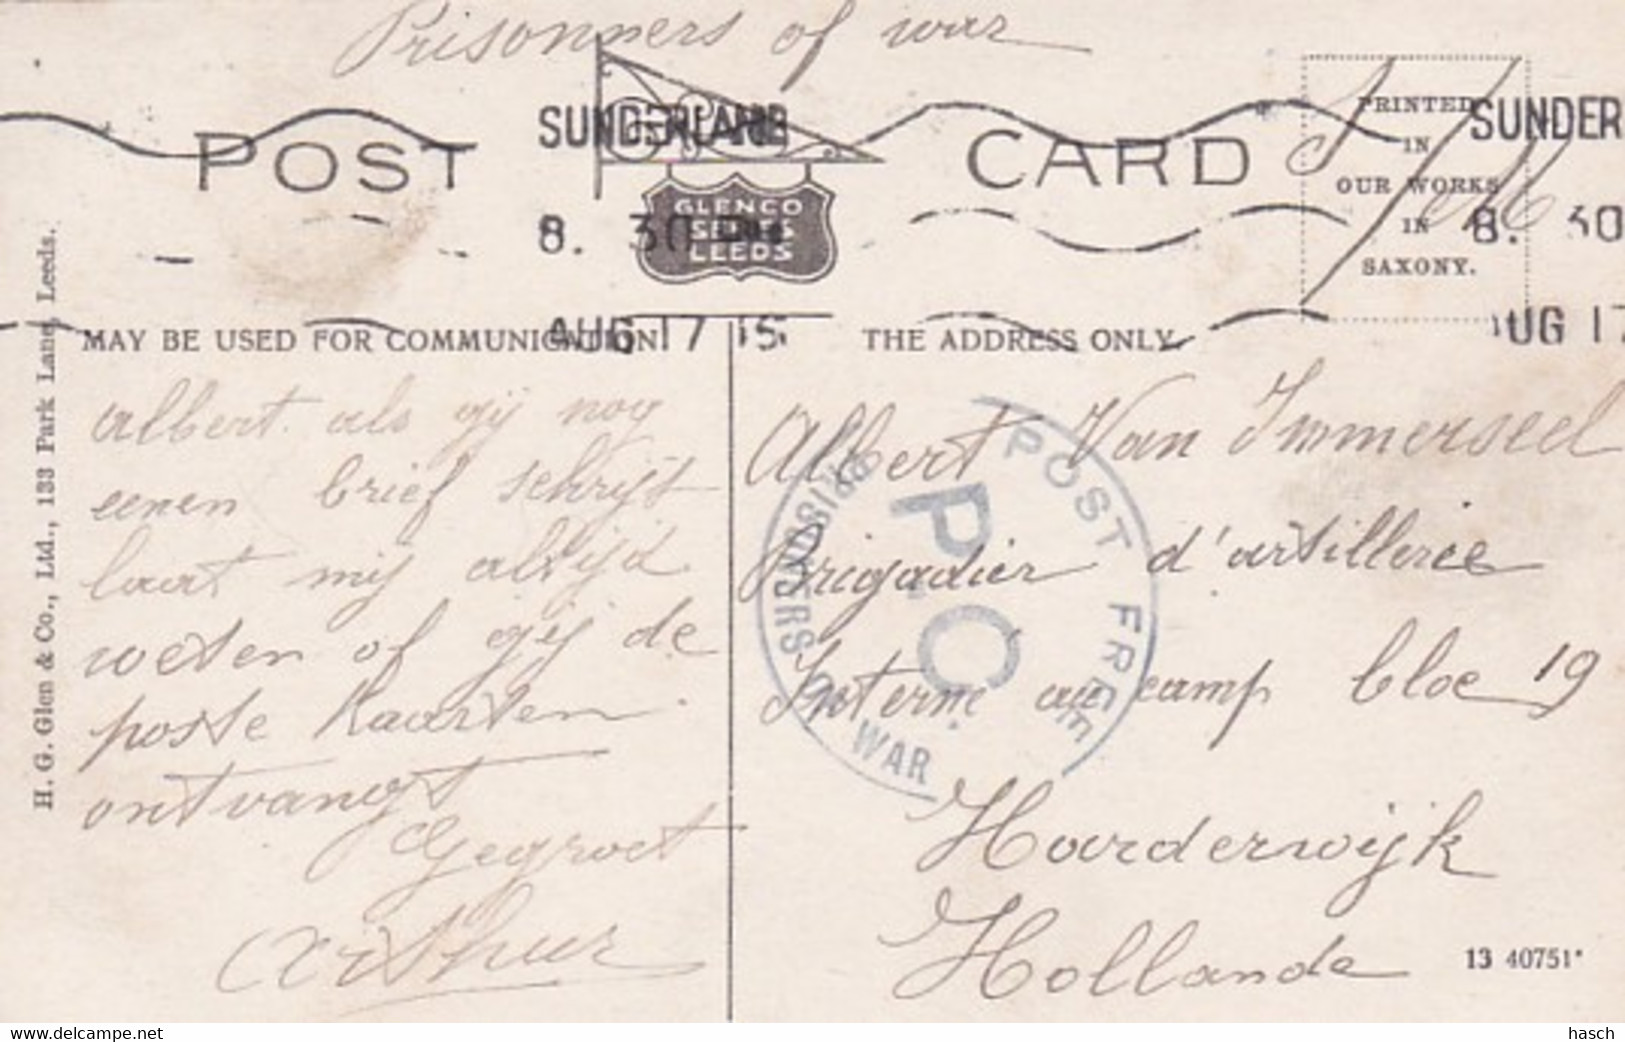 Prisonners of war
POST CARD
SUNDERLAND
8. 30 PM
AUG 17 15
GLENCO
SERIES
LEEDS
PRINTED
IN
OUR WORKS
IN
SAXONY.
SUNDER
8. 30
AUG 17
MAY BE USED FOR COMMUNICATION
THE ADDRESS ONLY
H. G. Glen & Co., Ltd., 133 Park Lane, Leeds.
Albert als gij nog
eenen brief schrijft
laat mij altijd
weten of gij de
poste kaarten
ontvangt
Gegroet
Arthur
POST FREE
PRISONERS OF WAR
P.C.
Albert Van Immerseel
Brigadier d'artillerie
Interné au camp bloc 19
Harderwijk
Hollande
13 40751*
www.delcampe.net
hasch